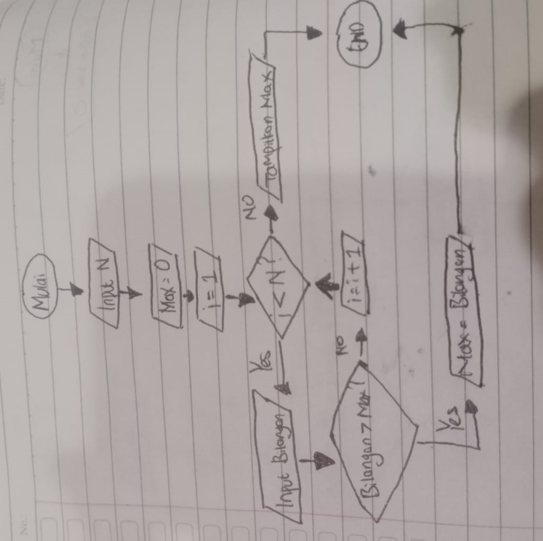 Mulai
Input N
Max = 0
i = 1
i < N?
NO
Tampilkan Max
END
Yes
Input Bilangan
Bilangan > Max?
NO
i = i + 1
Yes
Max = Bilangan
No.